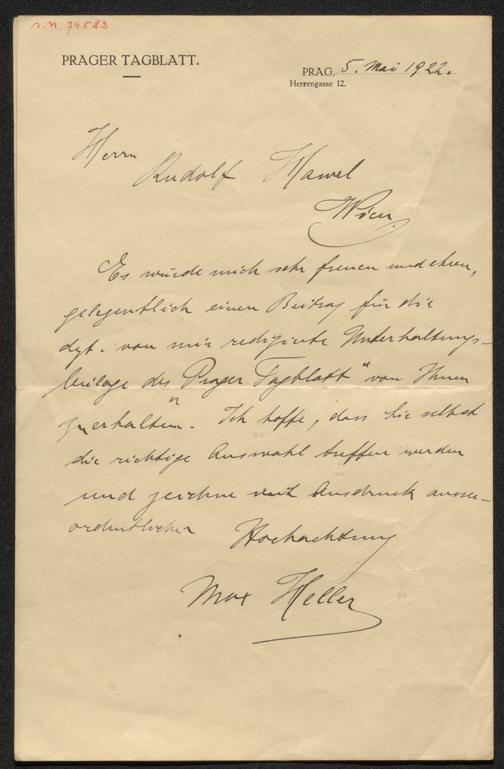 I. N. 74582
PRAGER TAGBLATT.
PRAG, 5. Mai 1922.
Herrengasse 12.
Herrn
Rudolf Hawel
Wien
Es würde mich sehr freuen und ehren,
gelegentlich einen Beitrag für die
dzt. von mir redigierte Unterhaltungs-
beilage des „Prager Tagblatt" von Ihnen
zu erhalten. Ich hoffe, dass Sie selbst
die richtige Auswahl treffen werden
und zeichne mit Ausdruck ausser-
ordentlicher Hochachtung
Max Heller